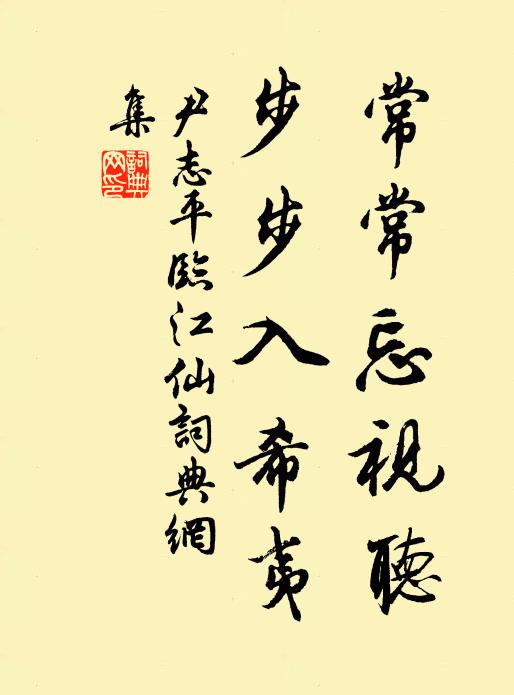 常常忘視聽
步步入希夷
尹志平臨江仙詞典網
集
詞典网印